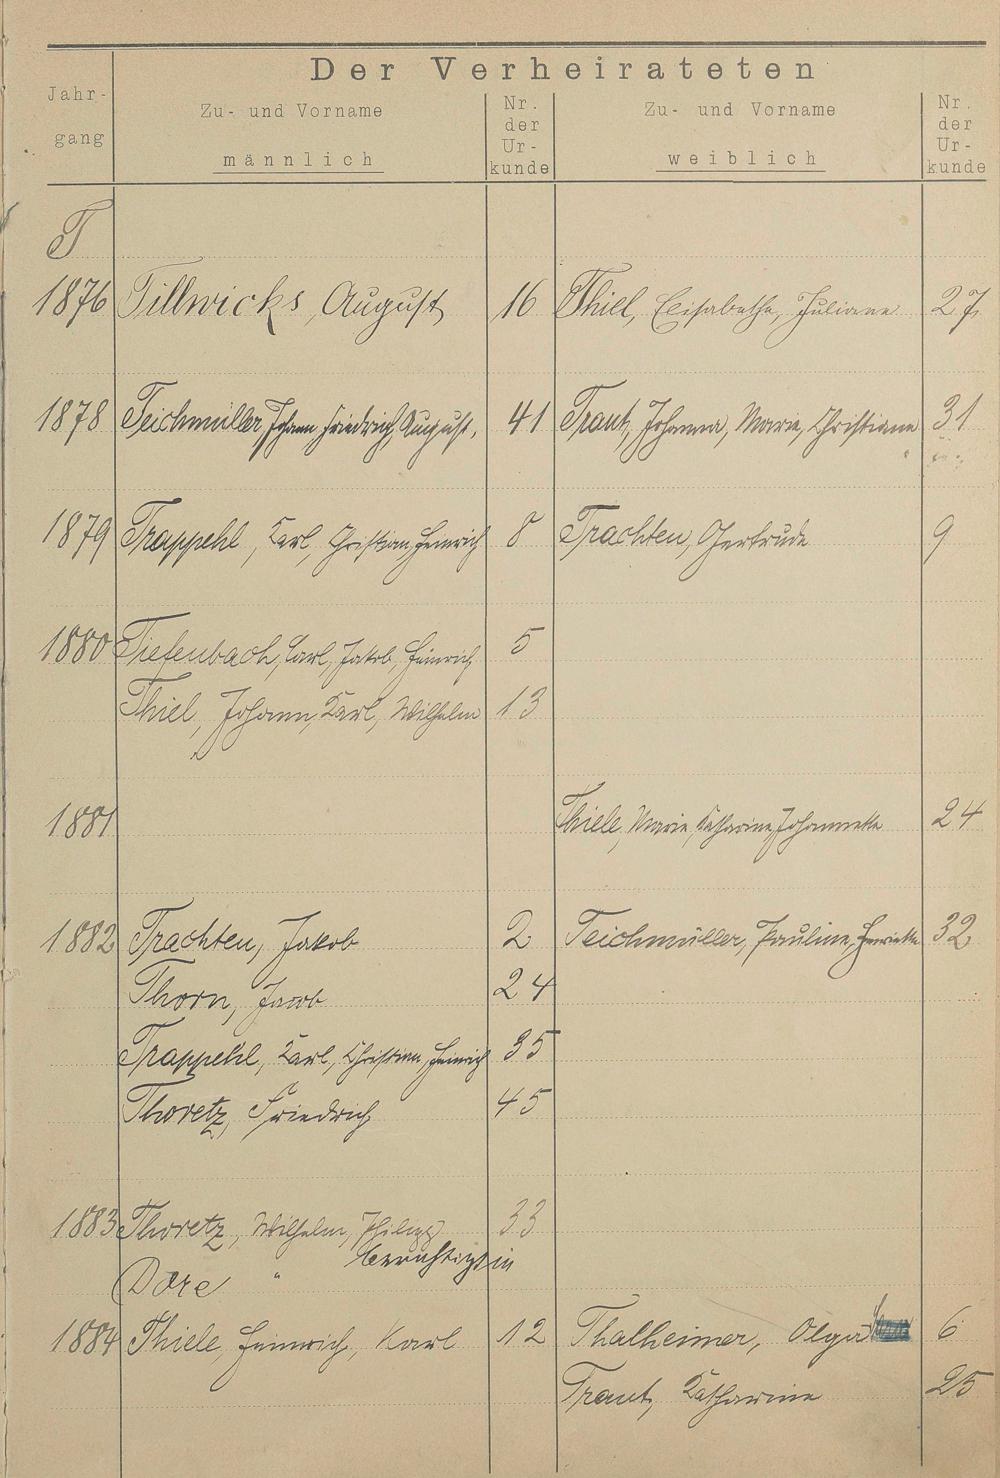 Der Verheirateten
Jahr-
gang
Zu- und Vorname
männlich
Nr.
der
Ur-
kunde
Zu- und Vorname
weiblich
Nr.
der
Ur-
kunde
T
1876 Tillwicks, August 16 Thiel, Elisabetha, Juliane 27
1878 Teichmüller, Johann Friedrich August, 41 Traut, Johanna, Marie, Christiane 31
1879 Trappehl, Karl, Christian, Heinrich 8 Trachten, Gertrude 9
1880 Tiefenbach, Carl, Jakob, Heinrich 5
Thiel, Johann, Karl, Wilhelm 13
1881 Thiele, Marie, Katharine, Johannette 24
1882 Trachten, Jakob 2 Teichmüller, Pauline, Henriette 32
Thorn, Jacob 24
Trappehl, Karl, Christian, Heinrich 35
Thoretz, Friedrich 45
1883 Thoretz, Wilhelm, Philipp 33
berichtigt in
Dore "
1884 Thiele, Heinrich, Karl 12 Thalheimer, Olga 6
Traut, Katharine 25